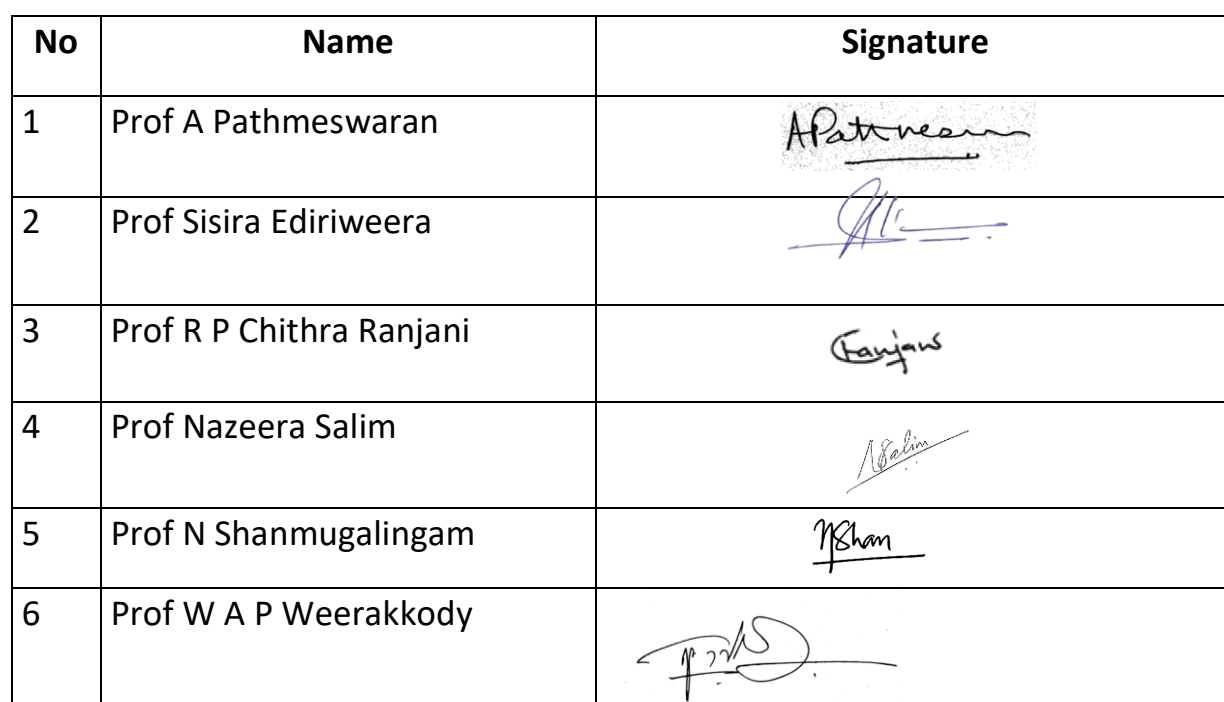 No Name Signature
1 Prof A Pathmeswaran
2 Prof Sisira Ediriweera
3 Prof R P Chithra Ranjani
4 Prof Nazeera Salim NSalim
5 Prof N Shanmugalingam NShan
6 Prof W A P Weerakkody